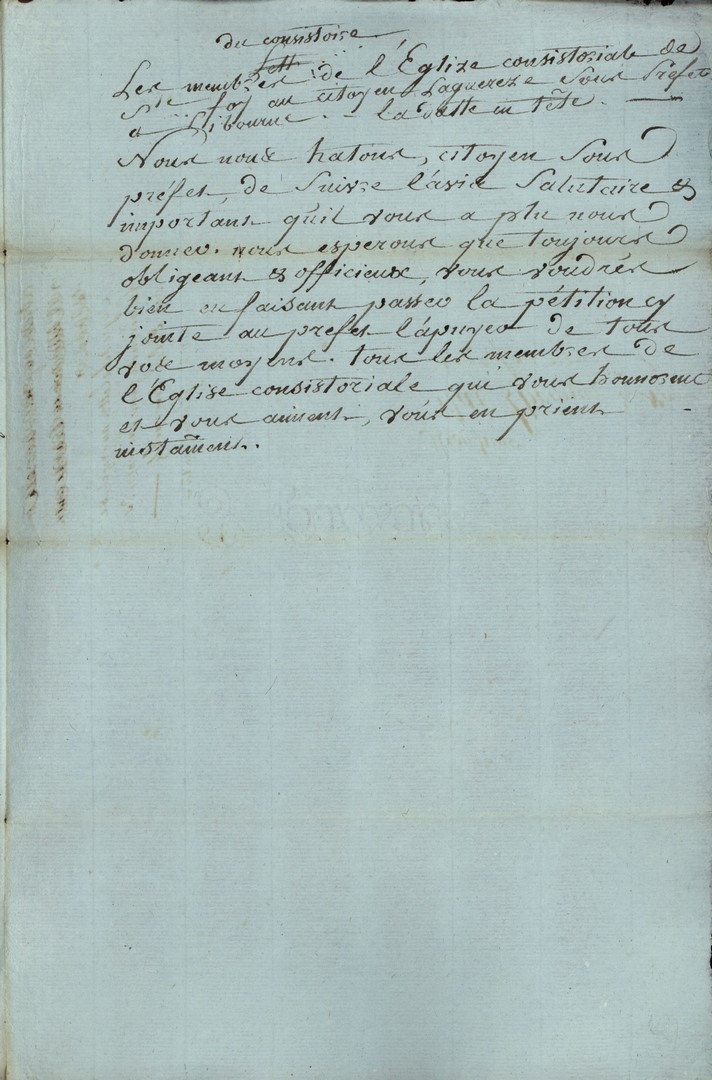 du consistoire
Les membres de l'Eglize consistoriale de
Ste foy au citoyen Laguereze Sous Préfet
a Libourne. - la datte en tête. -
Nous nous hatons, citoyen Sous
préfet, de Suivre l'avis Salutaire &
important qu'il vous a plu nous
donner. nous esperons que toujours
obligeant & officieux, vous voudrés
bien en faisant passer la pétition cy
jointe au prefet l'apuyer de tous
vos moyens. tous les membres de
l'Eglize consistoriale qui vous honnorent
et vous aiment, vous en prient
instãment.